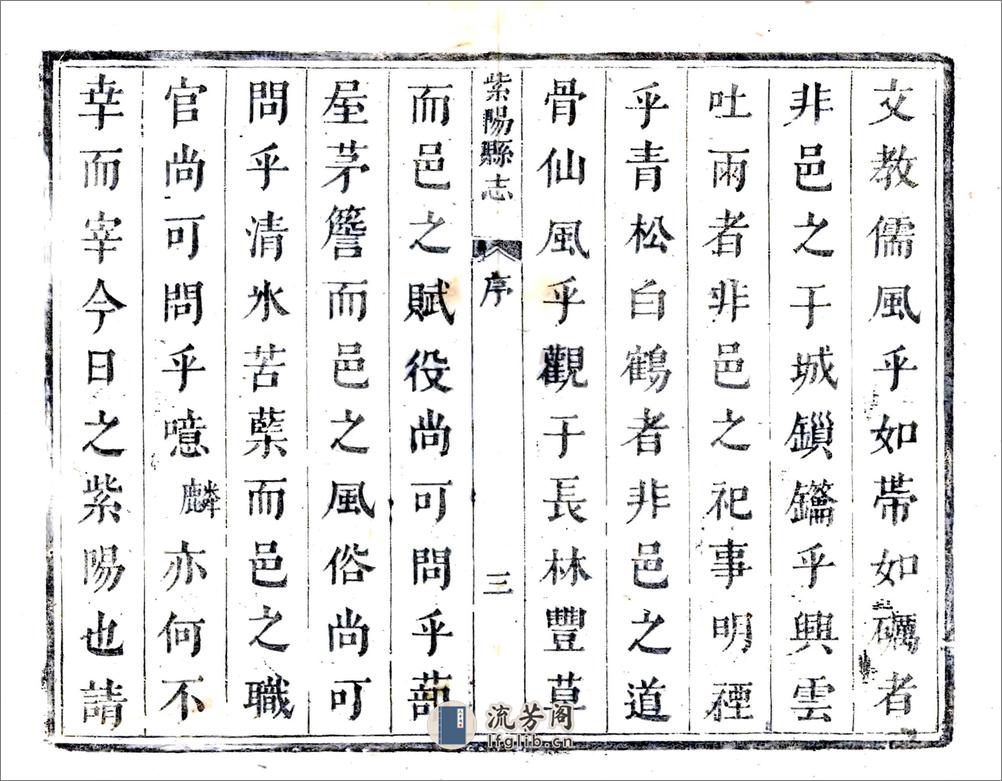 文教儒風乎如帶如礪者
非邑之干城鎖鑰乎興雲
吐雨者非邑之祀事明禋
乎青松白鶴者非邑之道
骨仙風乎觀于長林豐草
紫陽縣志 序 三
而邑之賦役尚可問乎蔀
屋茅簷而邑之風俗尚可
問乎清氷苦蘖而邑之職
官尚可問乎噫麟亦何不
幸而宰今日之紫陽也請
流芳阁
lfglib.cn